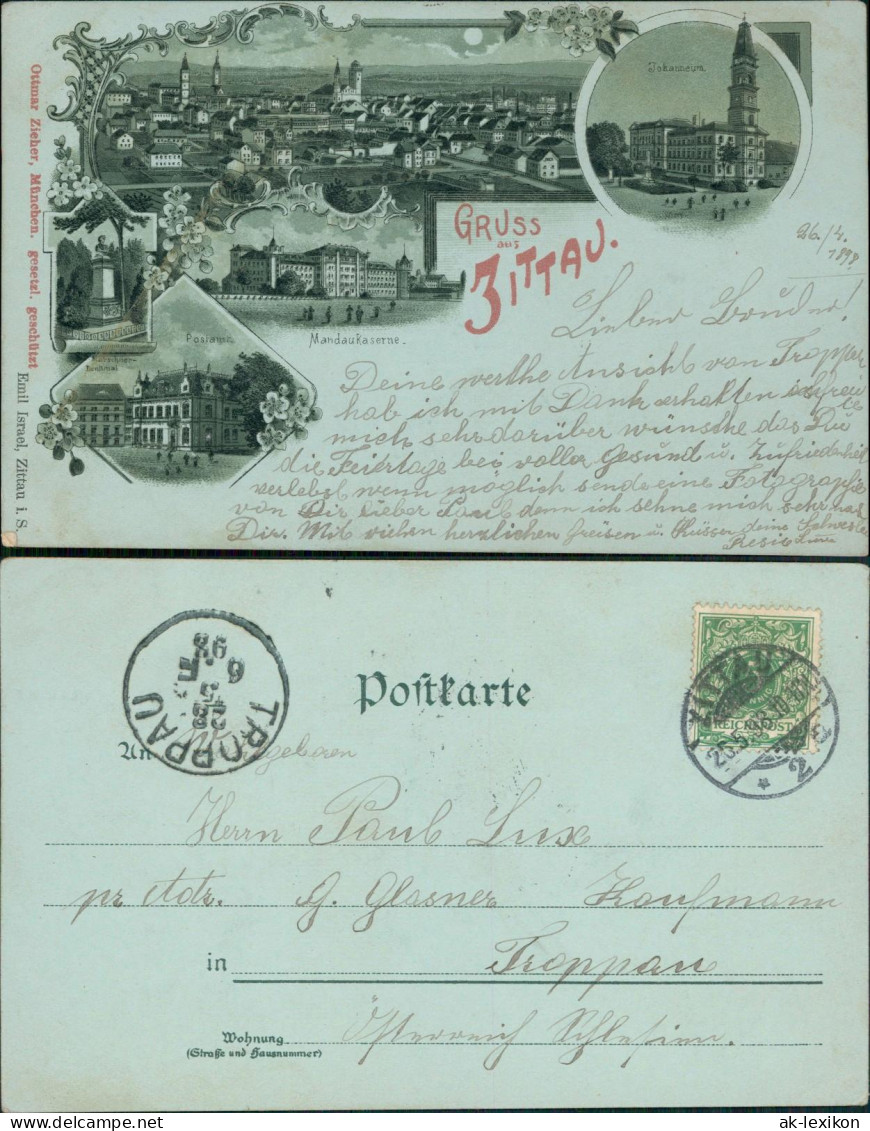 Ottmar Zieher, München. gesetzl. geschützt
Emil Israel, Zittau i. S.
Johanneum
GRUSS
aus
ZITTAU.
Postamt.
Denkmal
Mandaukaserne.
26./4.
1898
Lieber Bruder!
Deine werthe Ansicht von Troppau
hab ich mit Dank erhalten
mich sehr darüber wünsche das Du
die Feiertage bei voller Gesund u. Zufriedenheit
verlebst wenn möglich sende eine Fotographie
von Dir lieber Paul denn ich sehne mich sehr nach
Dir. Mit vielen herzlichen Greisen u. Küssen deine Schwester
Resie
TROPPAU
98
Postkarte
REICHSPOST
ZITTAU
An
Herrn Paul Lux
pr Adr. G. Glasner Kaufmann
in Troppau
Wohnung
(Straße und Hausnummer)
Österreich Schlesien.
ak-lexikon